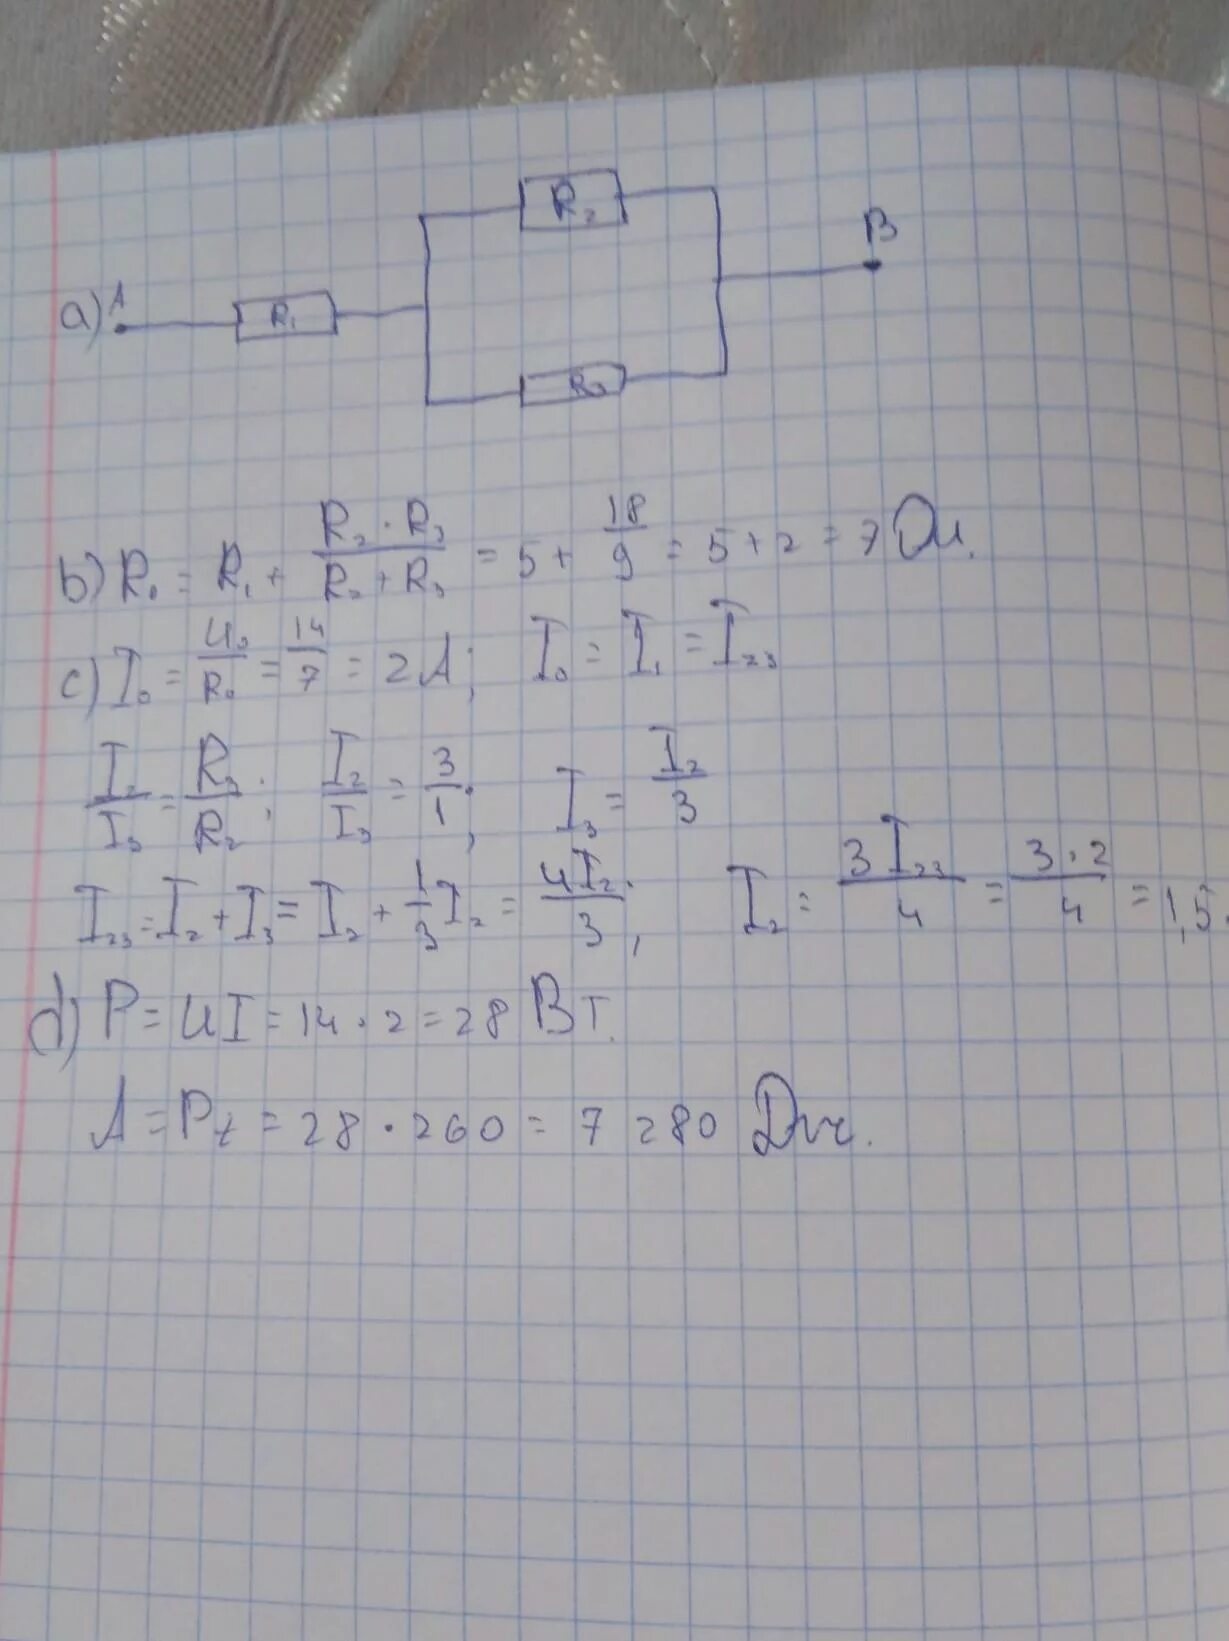 R₂
B
a) A
R₁
R₃
b) R₀ = R₁ + R₂·R₃/R₂+R₃ = 5 + 18/9 = 5 + 2 = 7 Ом.
c) I₀ = U₀/R₀ = 14/7 = 2 A; I₀ = I₁ = I₂₃
I₂/I₃ = R₃/R₂; I₂/I₃ = 3/1; I₃ = I₂/3
I₂₃ = I₂ + I₃ = I₂ + 1/3 I₂ = 4I₂/3; I₂ = 3I₂₃/4 = 3·2/4 = 1,5
d) P = UI = 14·2 = 28 Вт.
A = Pt = 28·260 = 7 280 Дж.